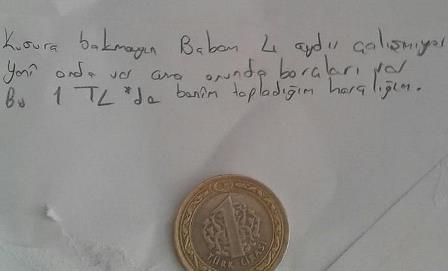 Kusura bakmayın Babam 4 aydır çalışmıyor
Yani onda var ama onunda borçları var
Bu 1 TL *de benim topladığım harçlığım.
1
TÜRK LİRASI